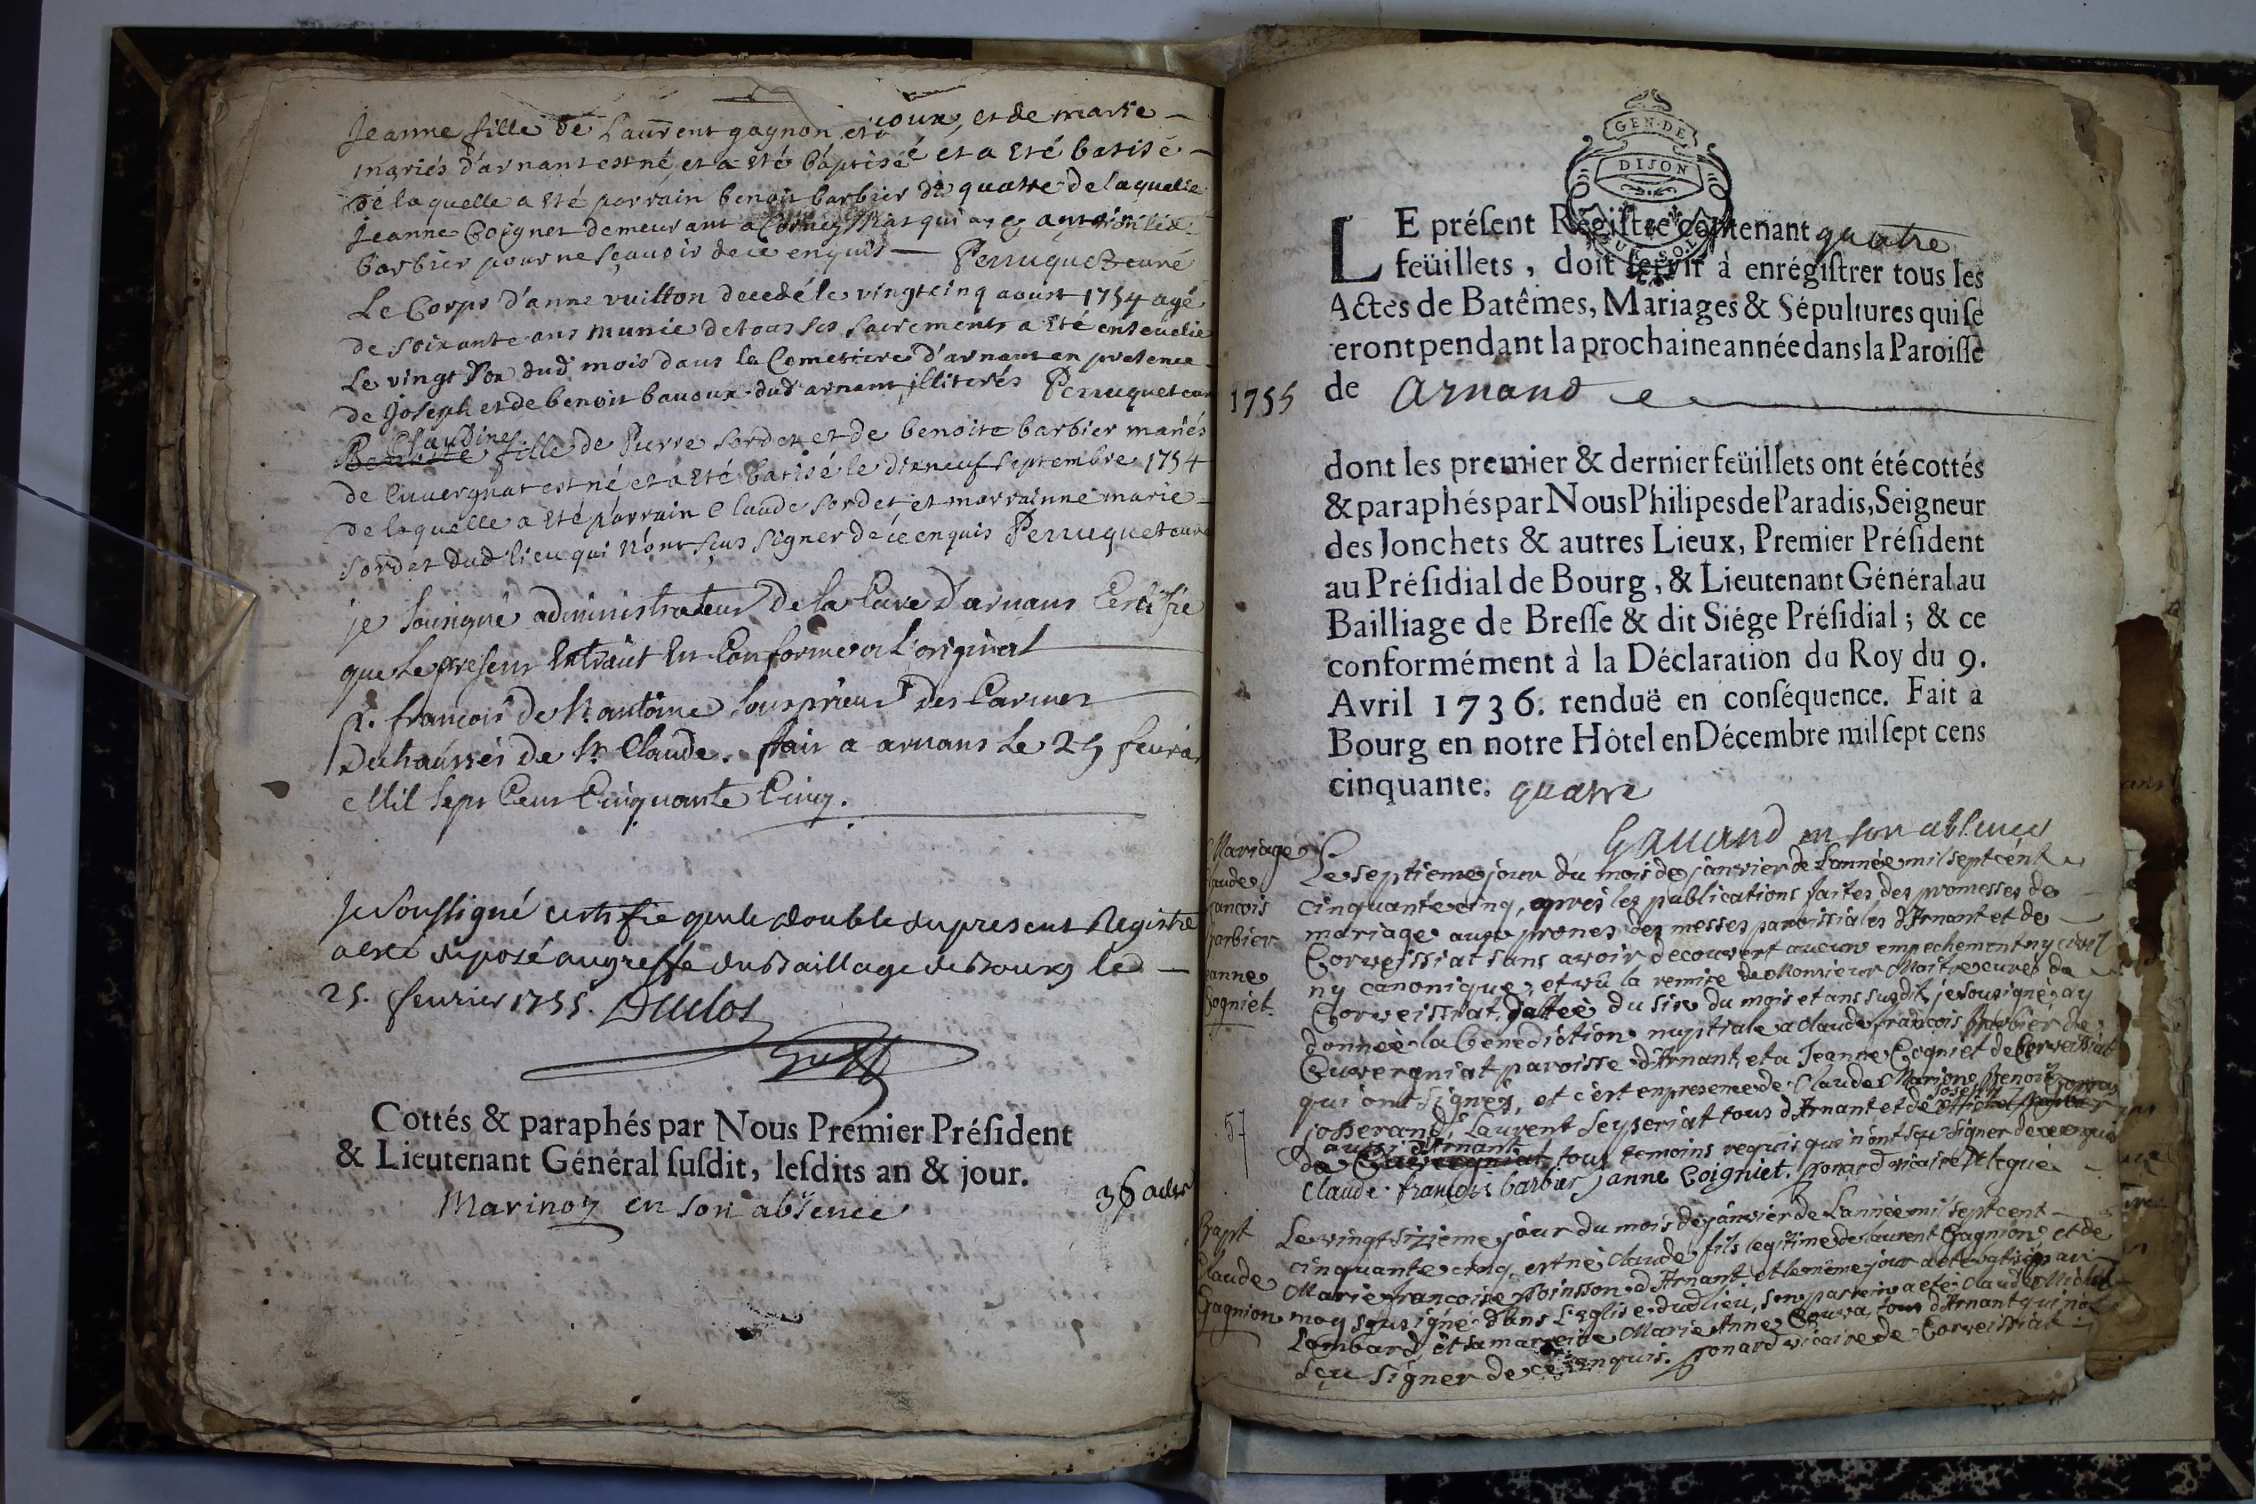 Jeanne fille de Laurent gagnon et
coux, et de marie
mariés d'arnant est né et a eté baptisé
é et a eté batisé
de laquelle a eté parrain benoit barbier
quatre de laquelle
jeanne Coignet demeurant a
barbier pour ne sçauoir de ce enquis Perruquet curé
Le Corps d'anne vuitton decedé le vingtcinq aoust 1754 agé
de soixante ans munie de tous ses sacrements a eté enseuelie
Le vingt dud mois dans le Cemetiere d'arnant en presence
de Joseph et de benoit bauoux dud arnant illiterés Perruquet cur
Claudine
Benoite fille de Pierre Sordet et de benoite barbier mariés
de Cuuergnat est né et a eté batisé le dixneuf septembre 1754
de laquelle a eté parrain Claude Sordet et marrainne marie
Sordet dud lieu qui n'ont sçus signer de ce enquis Perruquet curé
je sousigné administrateur De la Cure D'arnans Certifie
que Le present Extrait Est Conforme a L'original
f. francois de St antoine Sousprieur Des Carmes
Dechaussés de St Claude. fait a arnans Le 25 feurier
Mil Sept Cent Cinquante Cinq.
Je soussigné certifie que le double du present Registre
a esté deposé au greffe du Baillage de Bourg le
25. feurier 1755. Duclos
Cottés & paraphés par Nous Premier Préſident
& Lieutenant Général ſuſdit, leſdits an & jour.
Marinon en son absence
36
GEN. DE
DIJON
LE préſent Regiſtre contenant quatre
feüillets, doit ſervir à enrégiſtrer tous les
Actes de Batêmes, Mariages & Sépultures qui ſe
eront pendant la prochaine année dans la Paroiſſe
1755 de Arnand
dont les premier & dernier feüillets ont été cottés
& paraphés par Nous Philipes de Paradis, Seigneur
des Jonchets & autres Lieux, Premier Préſident
au Préſidial de Bourg, & Lieutenant Général au
Bailliage de Breſſe & dit Siége Préſidial ; & ce
conformément à la Déclaration du Roy du 9.
Avril 1736. renduë en conſéquence. Fait à
Bourg en notre Hôtel en Décembre mil ſept cens
cinquante. quatre
en son absence
Mariage
laude
rancois
barbier
eanne
Cogniet
Le septieme jour du mois de janvier de l'année mil sept cent
cinquante cinq, aprés les publications faites des promesses de
mariage aux prones des messes paroissiales d'Arnant et de
Corveissiat sans avoir decouvert aucun empechement ny civil
ny canonique, et vû la remise de Monsieur Maitre curé de
Corveissiat, dattée du six du mois et ans susdit, je sousigné ay
donnée la benediction nuptiale a Claude francois barbier de
Cuvergniat paroisse d'Arnant, et a Jeanne Cogniet de Corveissiat
qui ont signés, et c'est en presence de Claude Benoit
joseph
josserand, Laurent Leyseriat tous d'Arnant et de
aussi d'Arnant
de Cuvergniat tous temoins requis que n'ont sçu signer de ce enquis
57
Claude francois barbier janne Coigniet. ponard vicaire delegué
Bapt
Claude
Gagnion
Le vingt sixieme jour du mois de janvier de L'année mil sept cent
cinquante cinq est né claude fils legitime de laurent Gagnion et de
Marie francoise Poinsson d'Arnant et le même jour a eté batisé par
moy sousigné dans L'eglise dud lieu, son parrein a eté Claude Michel
Lombard et sa marreine Marie Anne tous d'Arnant qui n'ont
sçu signer de ce enquis. ponard vicaire de Corveissiat